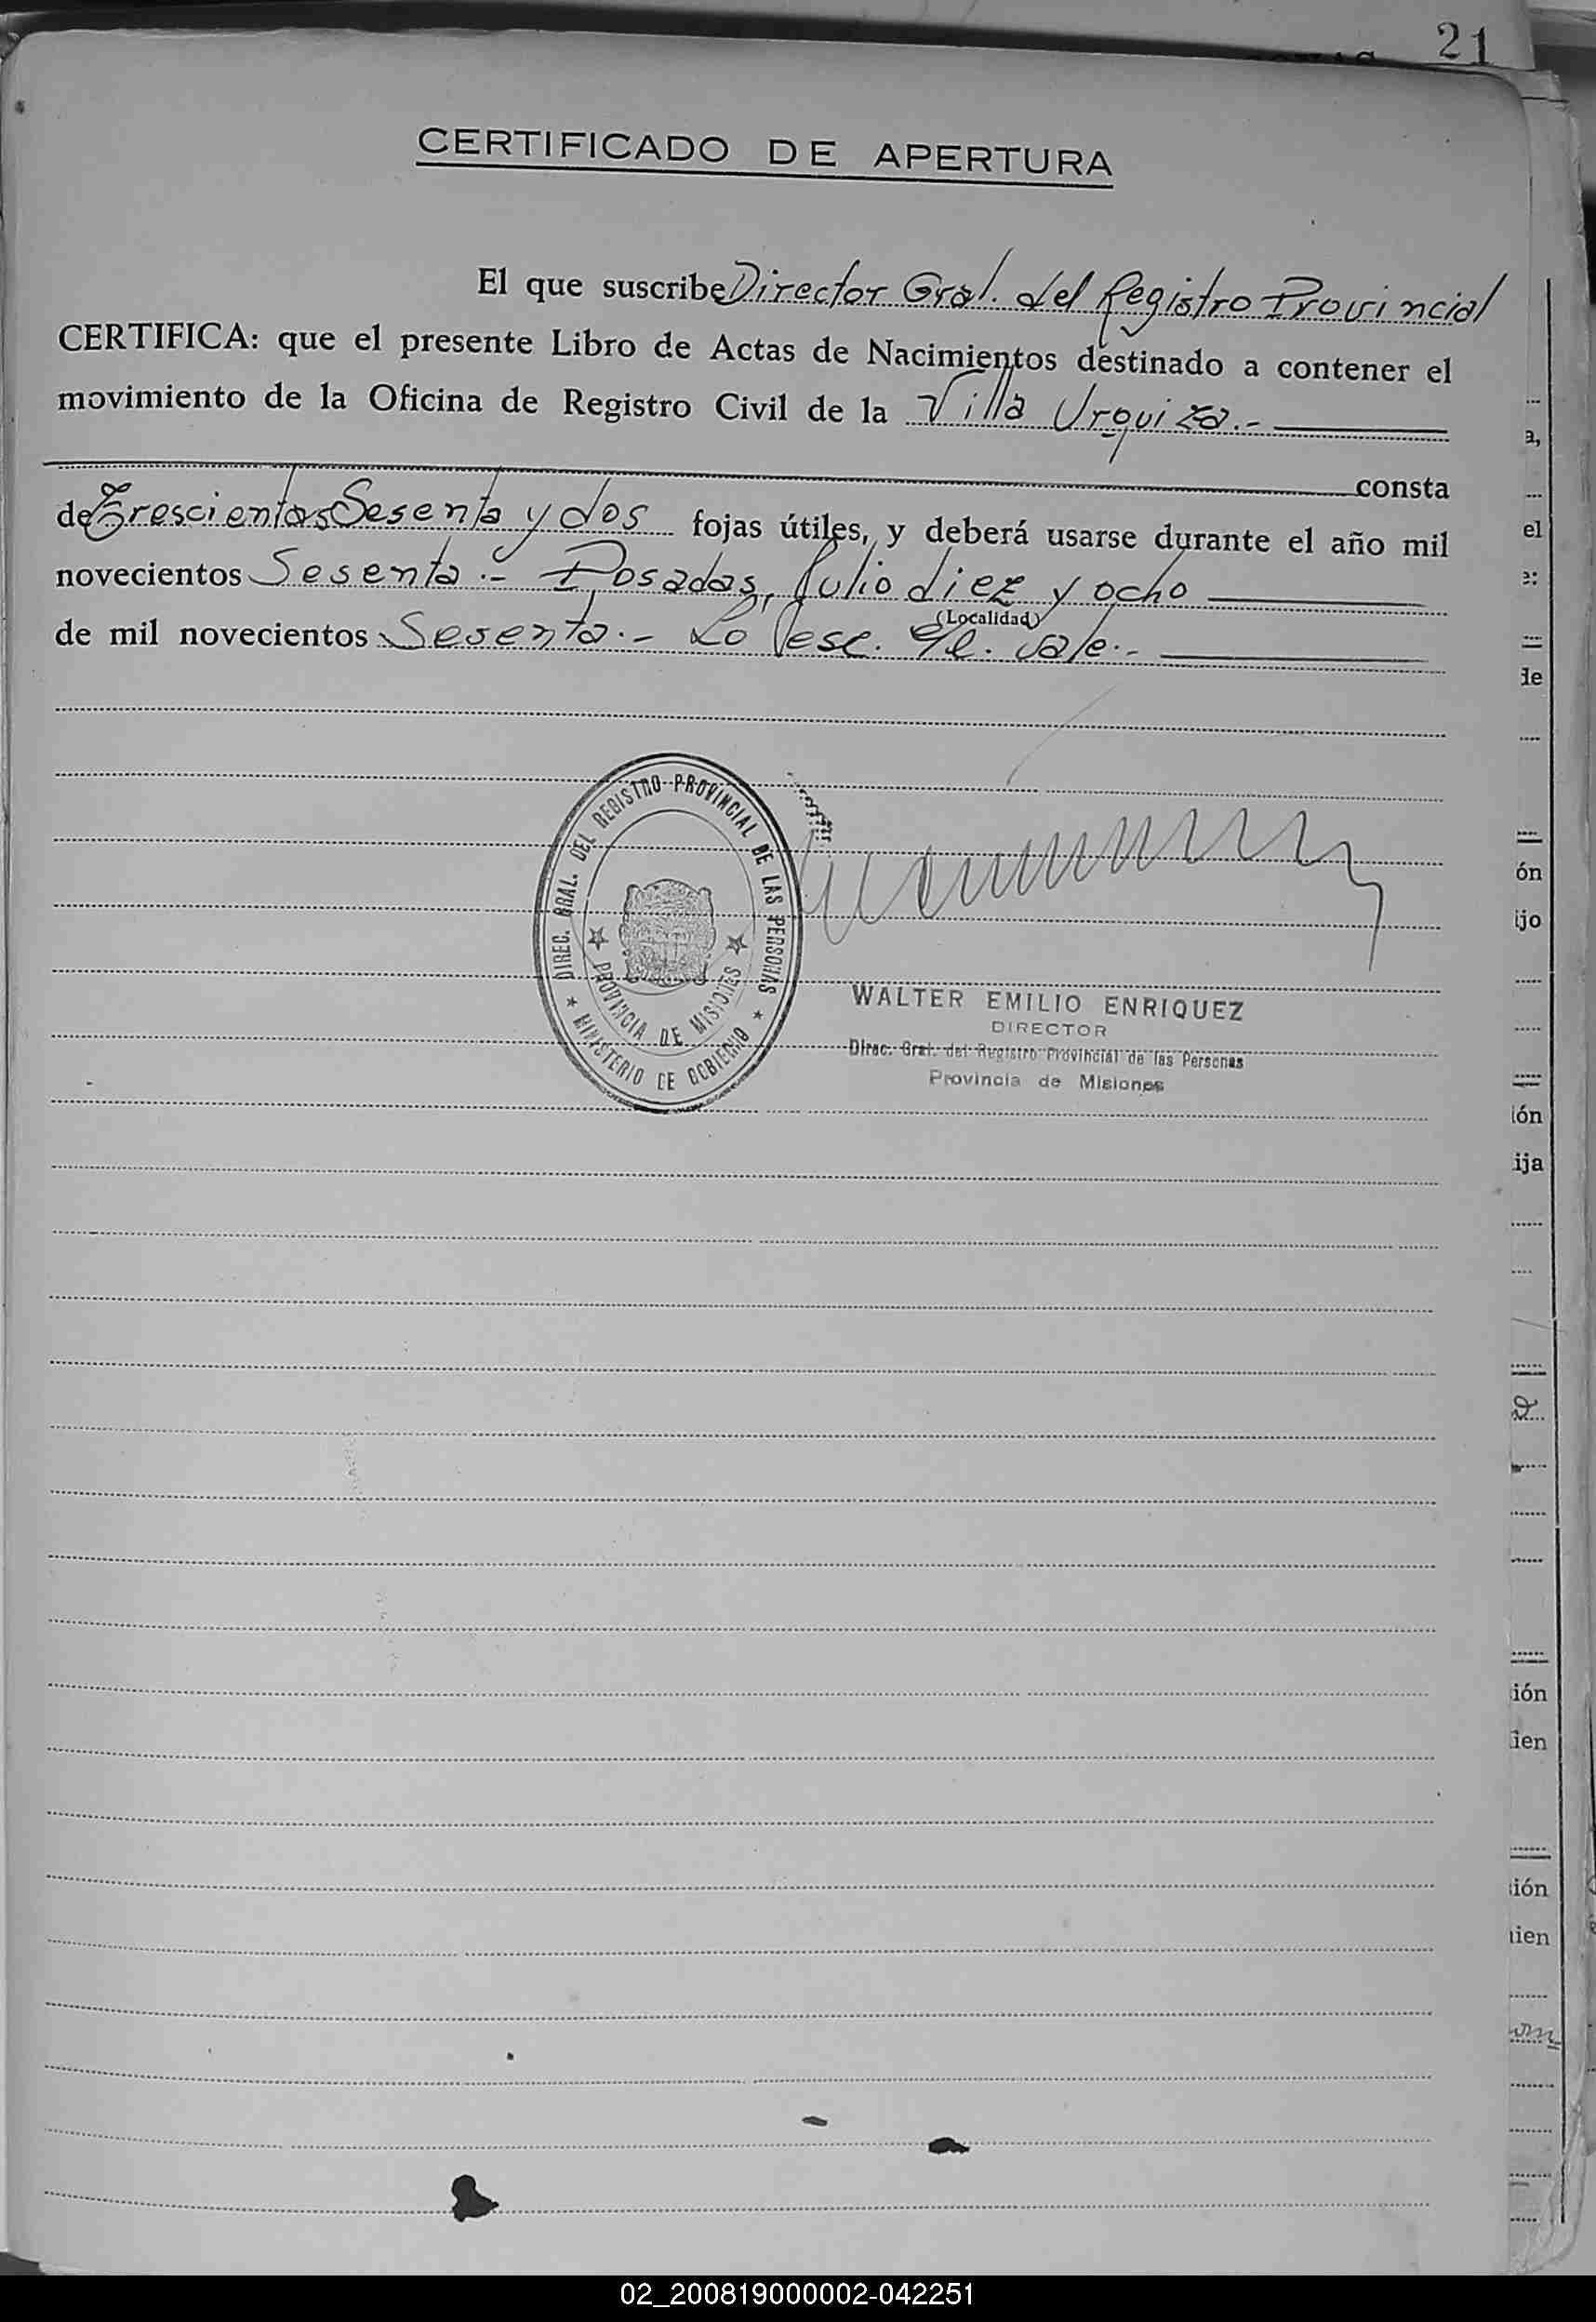 21
CERTIFICADO DE APERTURA
El que suscribe Director Gral. del Registro Provincial
CERTIFICA: que el presente Libro de Actas de Nacimientos destinado a contener el
movimiento de la Oficina de Registro Civil de la Villa Urquiza.-
consta
de Trescientas Sesenta y dos fojas útiles, y deberá usarse durante el año mil
novecientos Sesenta.- Posadas, Julio diez y ocho
(Localidad)
de mil novecientos Sesenta.- Lo vale.-
DIREC. GRAL. DEL REGISTRO PROVINCIAL DE LAS PERSONAS
PROVINCIA DE MISIONES
* MINISTERIO DE GOBIERNO *
WALTER EMILIO ENRIQUEZ
DIRECTOR
Direc. Gral. del Registro Provincial de las Personas
Provincia de Misiones
a,
el
de
ón
ijo
ión
ija
ión
ien
ión
ien
02_200819000002-042251